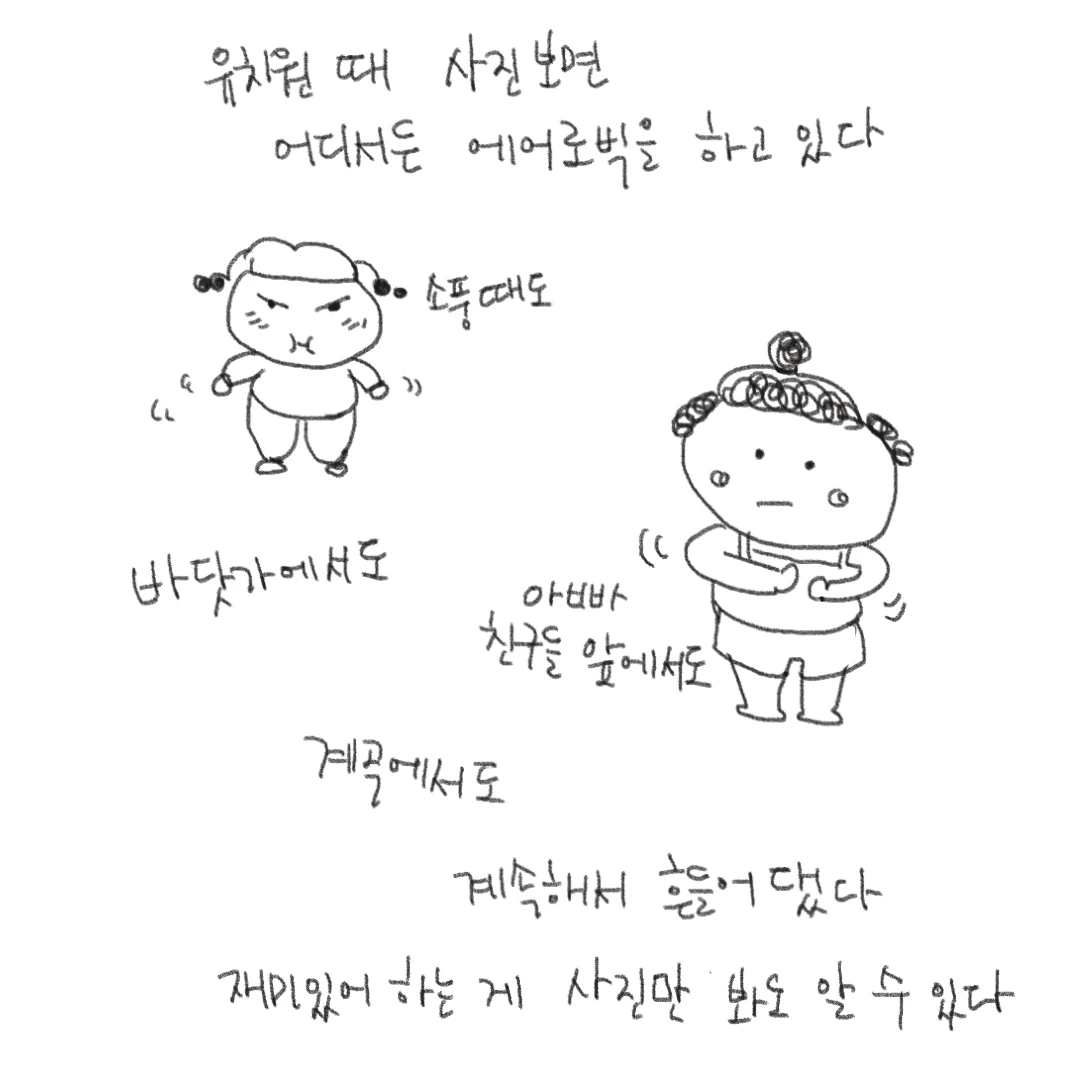 유치원 때 사진보면
어디서든 에어로빅을 하고 있다
소풍때도
바닷가에서도
아빠
친구들 앞에서도
계곡에서도
계속해서 흔들어 댔다
재미있어 하는 게 사진만 봐도 알 수 있다